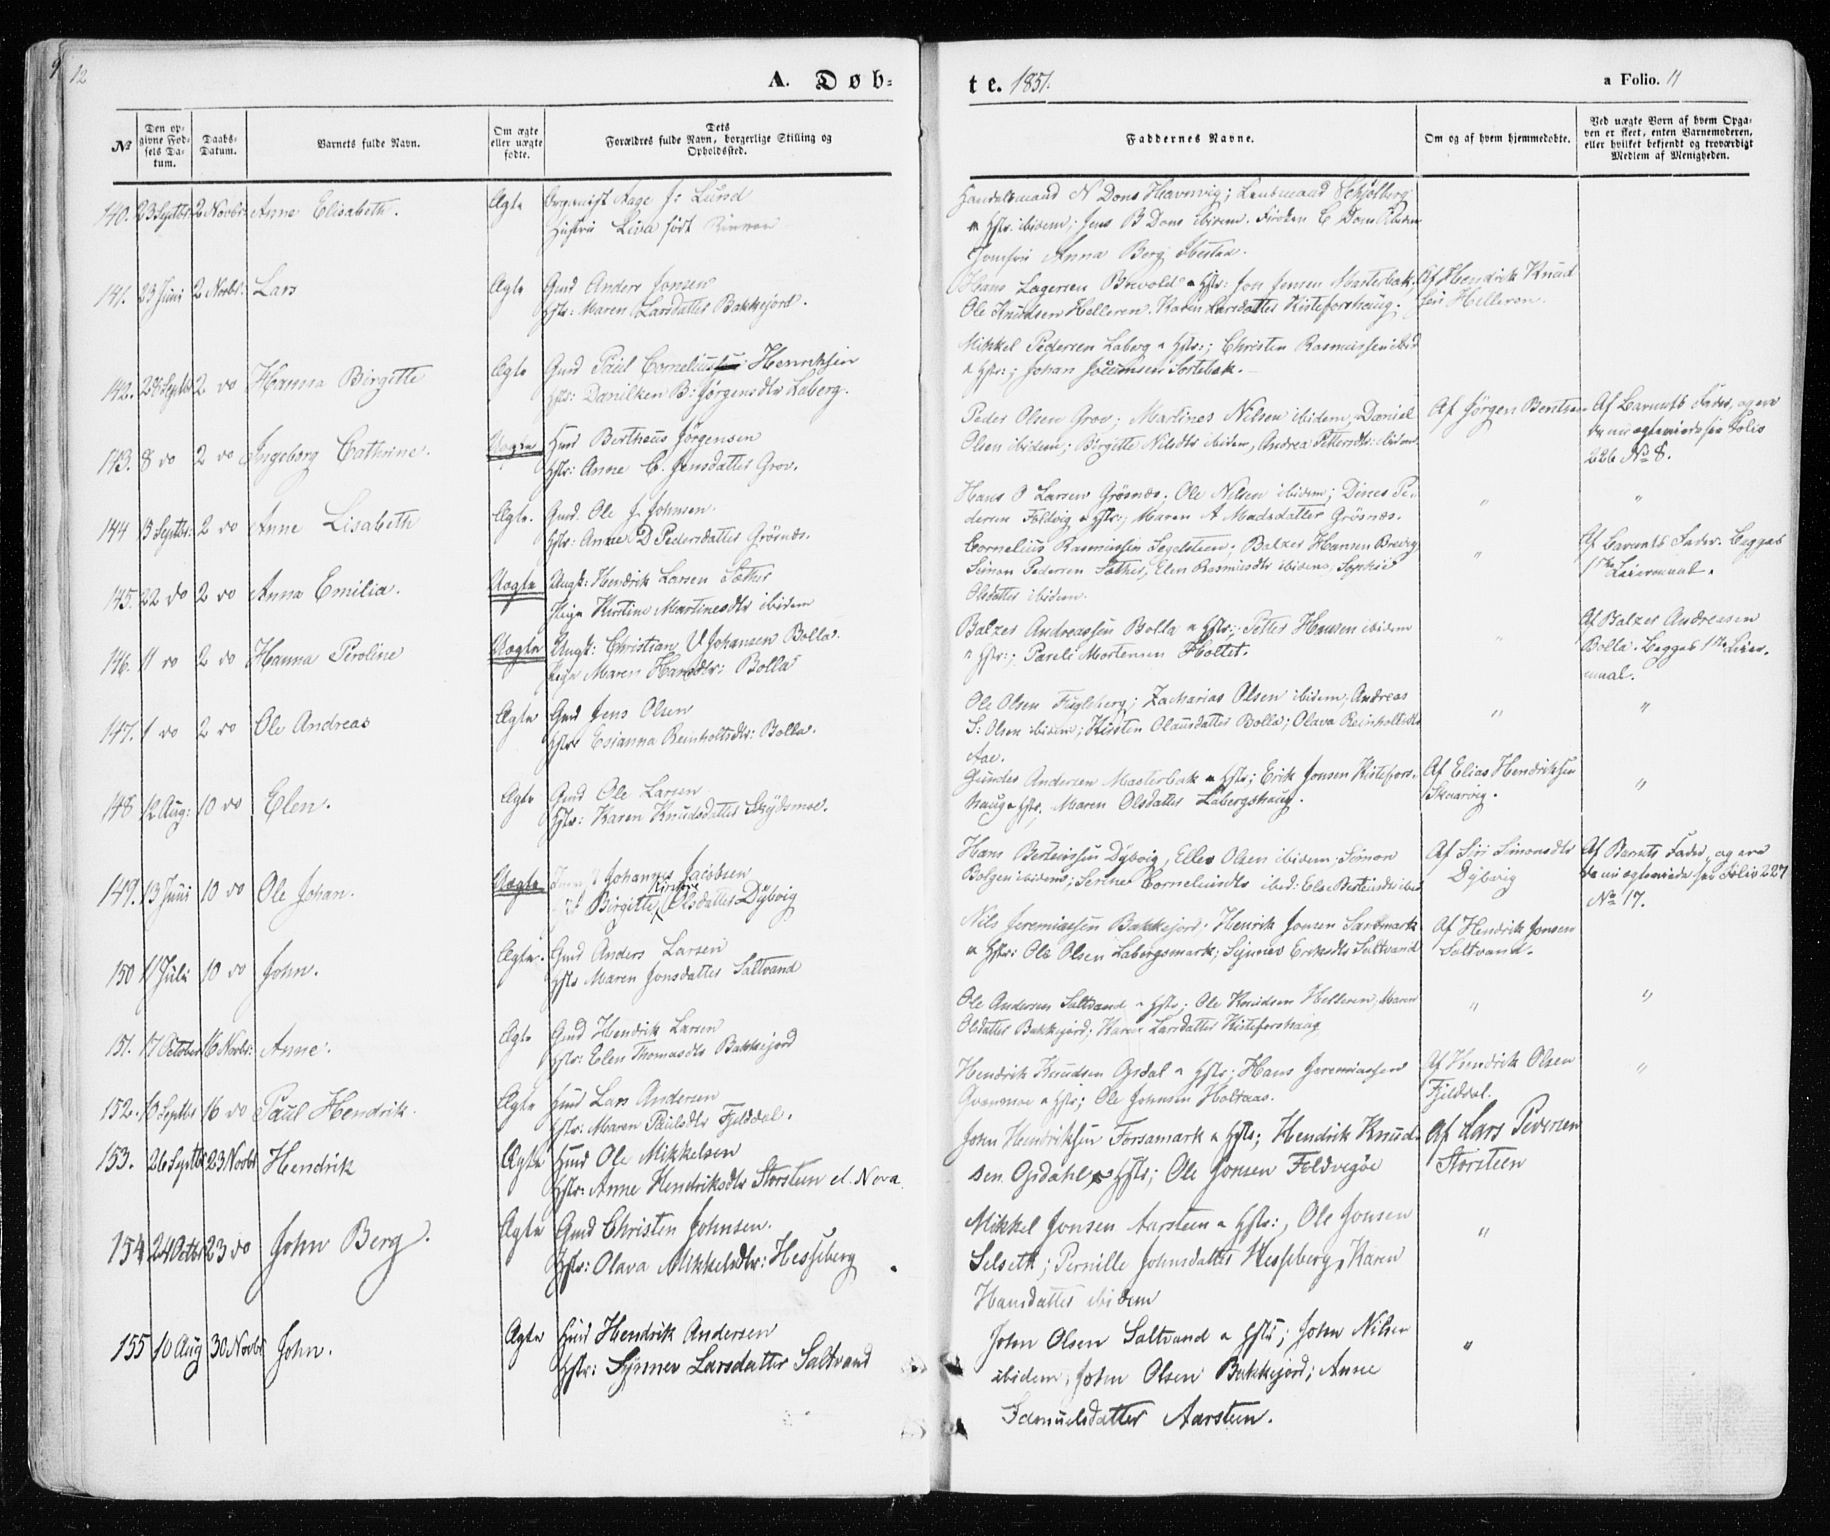 12
A. Døb-
№
Den op-
givne Fød-
sels Da-
tum.
Daabs-
Datum.
Barnets fulde Navn.
Om ægte
eller uægte
fødte.
Dets
Forældres fulde Navn, borgerlige Stilling og
Opholdssted.
140. 23 Septbr 2 Novbr: Anne Elisabeth. Ægte Organist Aage J: Lund
Hustru Liva født
141. 23 Juni 2 Novbr: Lars Ægte Gmd Anders Jonsen
Hstr: Maren Larsdatter Bakkejord.
142. 28 Septbr 2 do Hanna Birgitte Ægte Gmd Paul Cornelius Henriksen
Hstr: Danilken B: Jørgensdtr Laberg.
143. 8 do 2 do Ingeborg Cathrine. Uægte Huusmd Bertheus Jørgensen
Hstr: Anne C. Jensdatter Grov.
144 15 Septbr: 2 do Anne Lisabeth Ægte. Gmd. Ole J. Johnsen.
Hstr: Anne D Pedersdatter Grøsnæs.
145. 22 do 2 do Anna Emilia. Uægte Ungk: Hendrik Larsen Sæther
Pige Kirstine Martinesdtr ibidem
146. 11 do 2 do Hanna Peroline Uægte Ungk: Christian U Johansen Bolla.
Pige Maren Hansdtr: Bolla
147. 1 do 2 do Ole Andreas Ægte Gmd Jens Olsen
Hstr Esianna Reinholtsdtr: Bolla.
148. 12 Aug: 10 do Elen. Ægte Gmd Ole Larsen
Hstr: Karen Knudsdatter Skydsmoe.
149. 13 Juni 10 do Ole Johan. Uægte Johannes Jacobsen
Kirstine
Birgitte Olsdatter Dybvig
150 11 Juli 10 do John. Ægte. Gmd Anders Larsen
Hstr Maren Jonsdatter Saltvand
151. 17 October 16 Novbr: Anne. Ægte Gmd Hendrik Larsen
Hstr: Elen Thomasdtr Bakkejord
152. 10 Septbr 16 do Paul Hendrik. Ægte Huusmd Lars Andersen
Hstr: Maren Paulsdtr Fjelddal.
153. 26 Septbr 23 Novbr Hendrik Ægte Huusmd Ole Mikkelsen
Hstr: Anne Hendriksdtr Storsteen
154 24 Octbr 23 do John Berg. Ægte Gmd Christen Johnsen.
Hstr: Olava Mikkelsdtr: Hesseberg
155 10 Aug 30 Novbr John. Ægte Huusmd Hendrik Andersen
Hstr: Synnev Larsdatter Saltvand
te. 1851.
a Folio. 11
Faddernes Navne.
Om og af hvem hjemmedøbte.
Ved uægte Børn af hvem Opga-
ven er skeet, enten Barnemoderen,
eller hvilket bekjendt og troværdigt
Medlem af Menigheden.
Handelsmand N Dons Havnvig; Lensmand Schjølberg
& Hstr. ibidem; Jens B Dons ibidem. Frøken C Dons ibidem
Jomfru Anna Berg Ibestad.
Hans Lagesen Brevold & Hstr: Jon Jonsen Masterbak, Af Hendrik Knud
Ole Knudsen Helleren. Karen Larsdatter Kisteforshaug. sen Helleren.
Mikkel Pedersen Laberg & Hstr:; Christen Rasmussen ibid
& Hstr:; Johan Sortebak.
Peder Olsen Grov; Martines Nilsen ibidem, Daniel Af Jørgen Bentsen Af Barnets Fader, og ere
Olsen ibidem; Birgitte Nilsdtr ibidem, Andrea Pettersdtr: ibidem. de nu ægteviede see Folio
226 № 8.
Hans O Larsen Grøsnæs; Ole Nilsen ibidem; Dines Pe- " "
dersen Foldvig & Hstr:; Maren A Madsdatter Grøsnæs.
Cornelius Rasmussen Segelsteen; Balzer Hansen Brevig " Af Barnets Fader. Begges
Simon Pedersen Sæther, Elen Rasmusdtr ibidem, Sophie 1ste Leiermaal.
Olsdatter ibidem.
Balzer Andreassen Bolla & Hstr:; Petter Hansen ibidem " Af Balzer Andreasen
& Hstr:; Pareli Mortensen Holtet. Bolla. Begges 1ste Leier-
maal.
Ole Olsen Fugleberg; Zacharias Olsen ibidem, Andreas " "
S: Olsen ibidem; Kirsten Olausdatter Bolla; Olava Reinholtsdtr
Aae.
Gunder Andersen Masterbak & Hstr; Erik Jonsen Kistefors- Af Elias Hendriksen "
haug & Hstr; Maren Olsdatter Labergshaug. Skaarvig.
Hans Berteussen Dybvig, Elles Olsen ibidem, Simon Af Siri Simonsdtr Af Barnets Fader, og ere
Bolgen ibidem; Serine Corneliusdtr ibid: Else Berteusdtr ibid Dybvig de nu ægteviede see Folio 227
№ 17.
Nils Jeremiassen Bakkejord, Henrik Jonsen Sandmark Af Hendrik Jonsen
& Hstr: Ole Olsen Labergsmark; Synnev Eriksdtr Saltvand Saltvand.
Ole Andersen Saltvand & Hstr; Ole Knudsen Helleren, Maren " "
Olsdatter Bakkejord; Karen Larsdatter Kisteforshaug
Hendrik Knudsen Gsdal & Hstr; Hans Jeremiassen Af Hendrik Olsen "
Gvænmoe & Hstr; Ole Johnsen Holtaas. Fjelddal.
John Hendriksen Forsamark & Hstr; Hendrik Knud- Af Lars Pedersen
sen Gsdahl & Hstr; Ole Jonsen Foldvigøe Storsteen
Mikkel Jonsen Aarsteen & Hstr:, Ole Jonsen "
Selseth; Pernille Johnsdatter Hesseberg, Karen
Hansdatter ibidem
John Olsen Saltvand & Hstr; John Nilsen "
ibidem, John Olsen Bakkejord; Anne
Samuelsdatter Aarsteen.